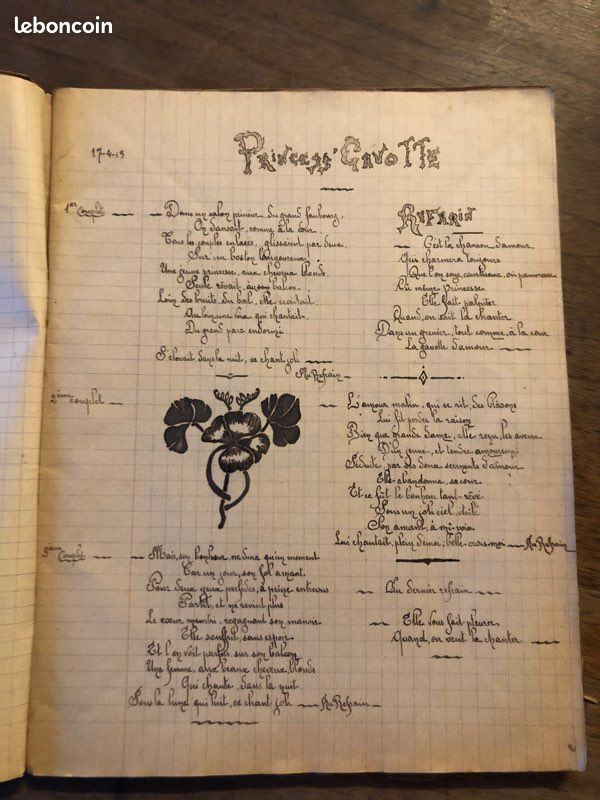 leboncoin
17-4-19
Princess' Gavotte
1er Couplet — Dans un salon princier, du grand faubourg,
On dansait, comme à la cour
Tous les couples enlacés, glissaient par deux,
Sur un boston langoureux
Une jeune princesse, aux cheveux blonds,
Seule rêvait, au son balcon
Loin des bruits, du bal, elle écoutait
voix qui chantait
Du grand parc endormi
S'élevait dans la nuit, ce chant joli —
Au Refrain —
Refrain
— C'est la chanson d'amour
Qui charmera toujours
Que l'on soye ou pauvresse
Où même Princesse
Elle fait palpiter
Quand, on sait la chanter
Dans un grenier, tout comme, à la cour
La gavotte d'amour —
2ème couplet —
— L'amour malin, qui se rit, des Blasons
Lui fit perdre la raison
Bien que grande dame, elle reçu, les aveux
D'un jeune, et tendre amoureux
Séduite, par ses doux serments d'amour
Elle abandonna, sa cour
Et ce fût, le bonheur tant rêvé
Sous un joli ciel, étoilé
Son amant, à mi-voix
Lui chantait, plein d'émoi, belle crois-moi — Au Refrain
3ème Couplet — Mais, son bonheur, ne dura qu'un moment
Car un jour, son fol amant,
Pour deux yeux perfides, à peine entrevus
Partit, et ne revint plus
Le cœur meurtri, regagnant son manoir
Elle souffrit, sans espoir
Et l'on voit parfois, sur son balcon
Une femme, aux beaux cheveux, blonds
Qui chante, dans la nuit
Sous la lune qui luit, ce chant joli — Au Refrain —
— Au dernier refrain —
— Elle vous fait pleurer
Quand, on veut la chanter —